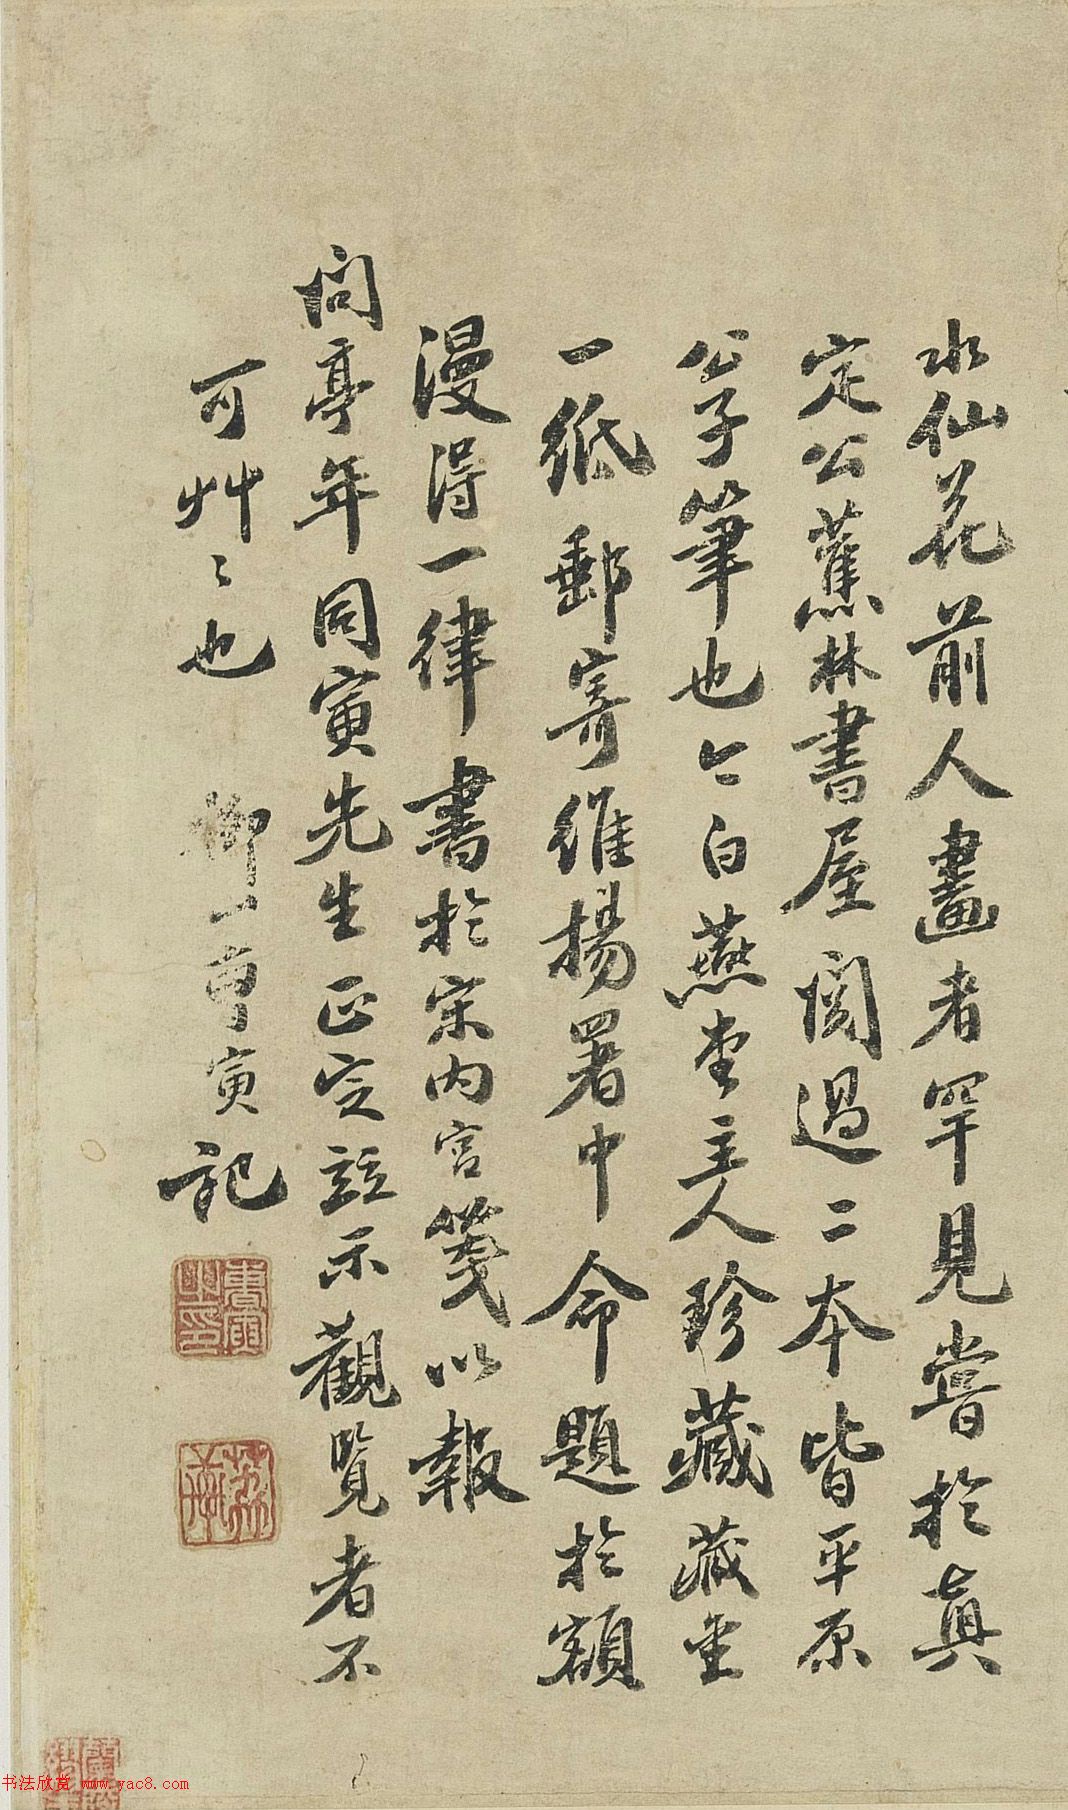 水仙花前人畫者罕見嘗於真
定公蕉林書屋閱過二本皆平原
公子筆也今白燕堂主人珍藏藏望
一紙郵寄維揚署中命題於額
漫得一律書於宋內宮箋以報
問亭年同寅先生正定並示觀覽者不
可艸〻也 柳一曹寅記
荔軒
书法欣赏 www.yac8.com